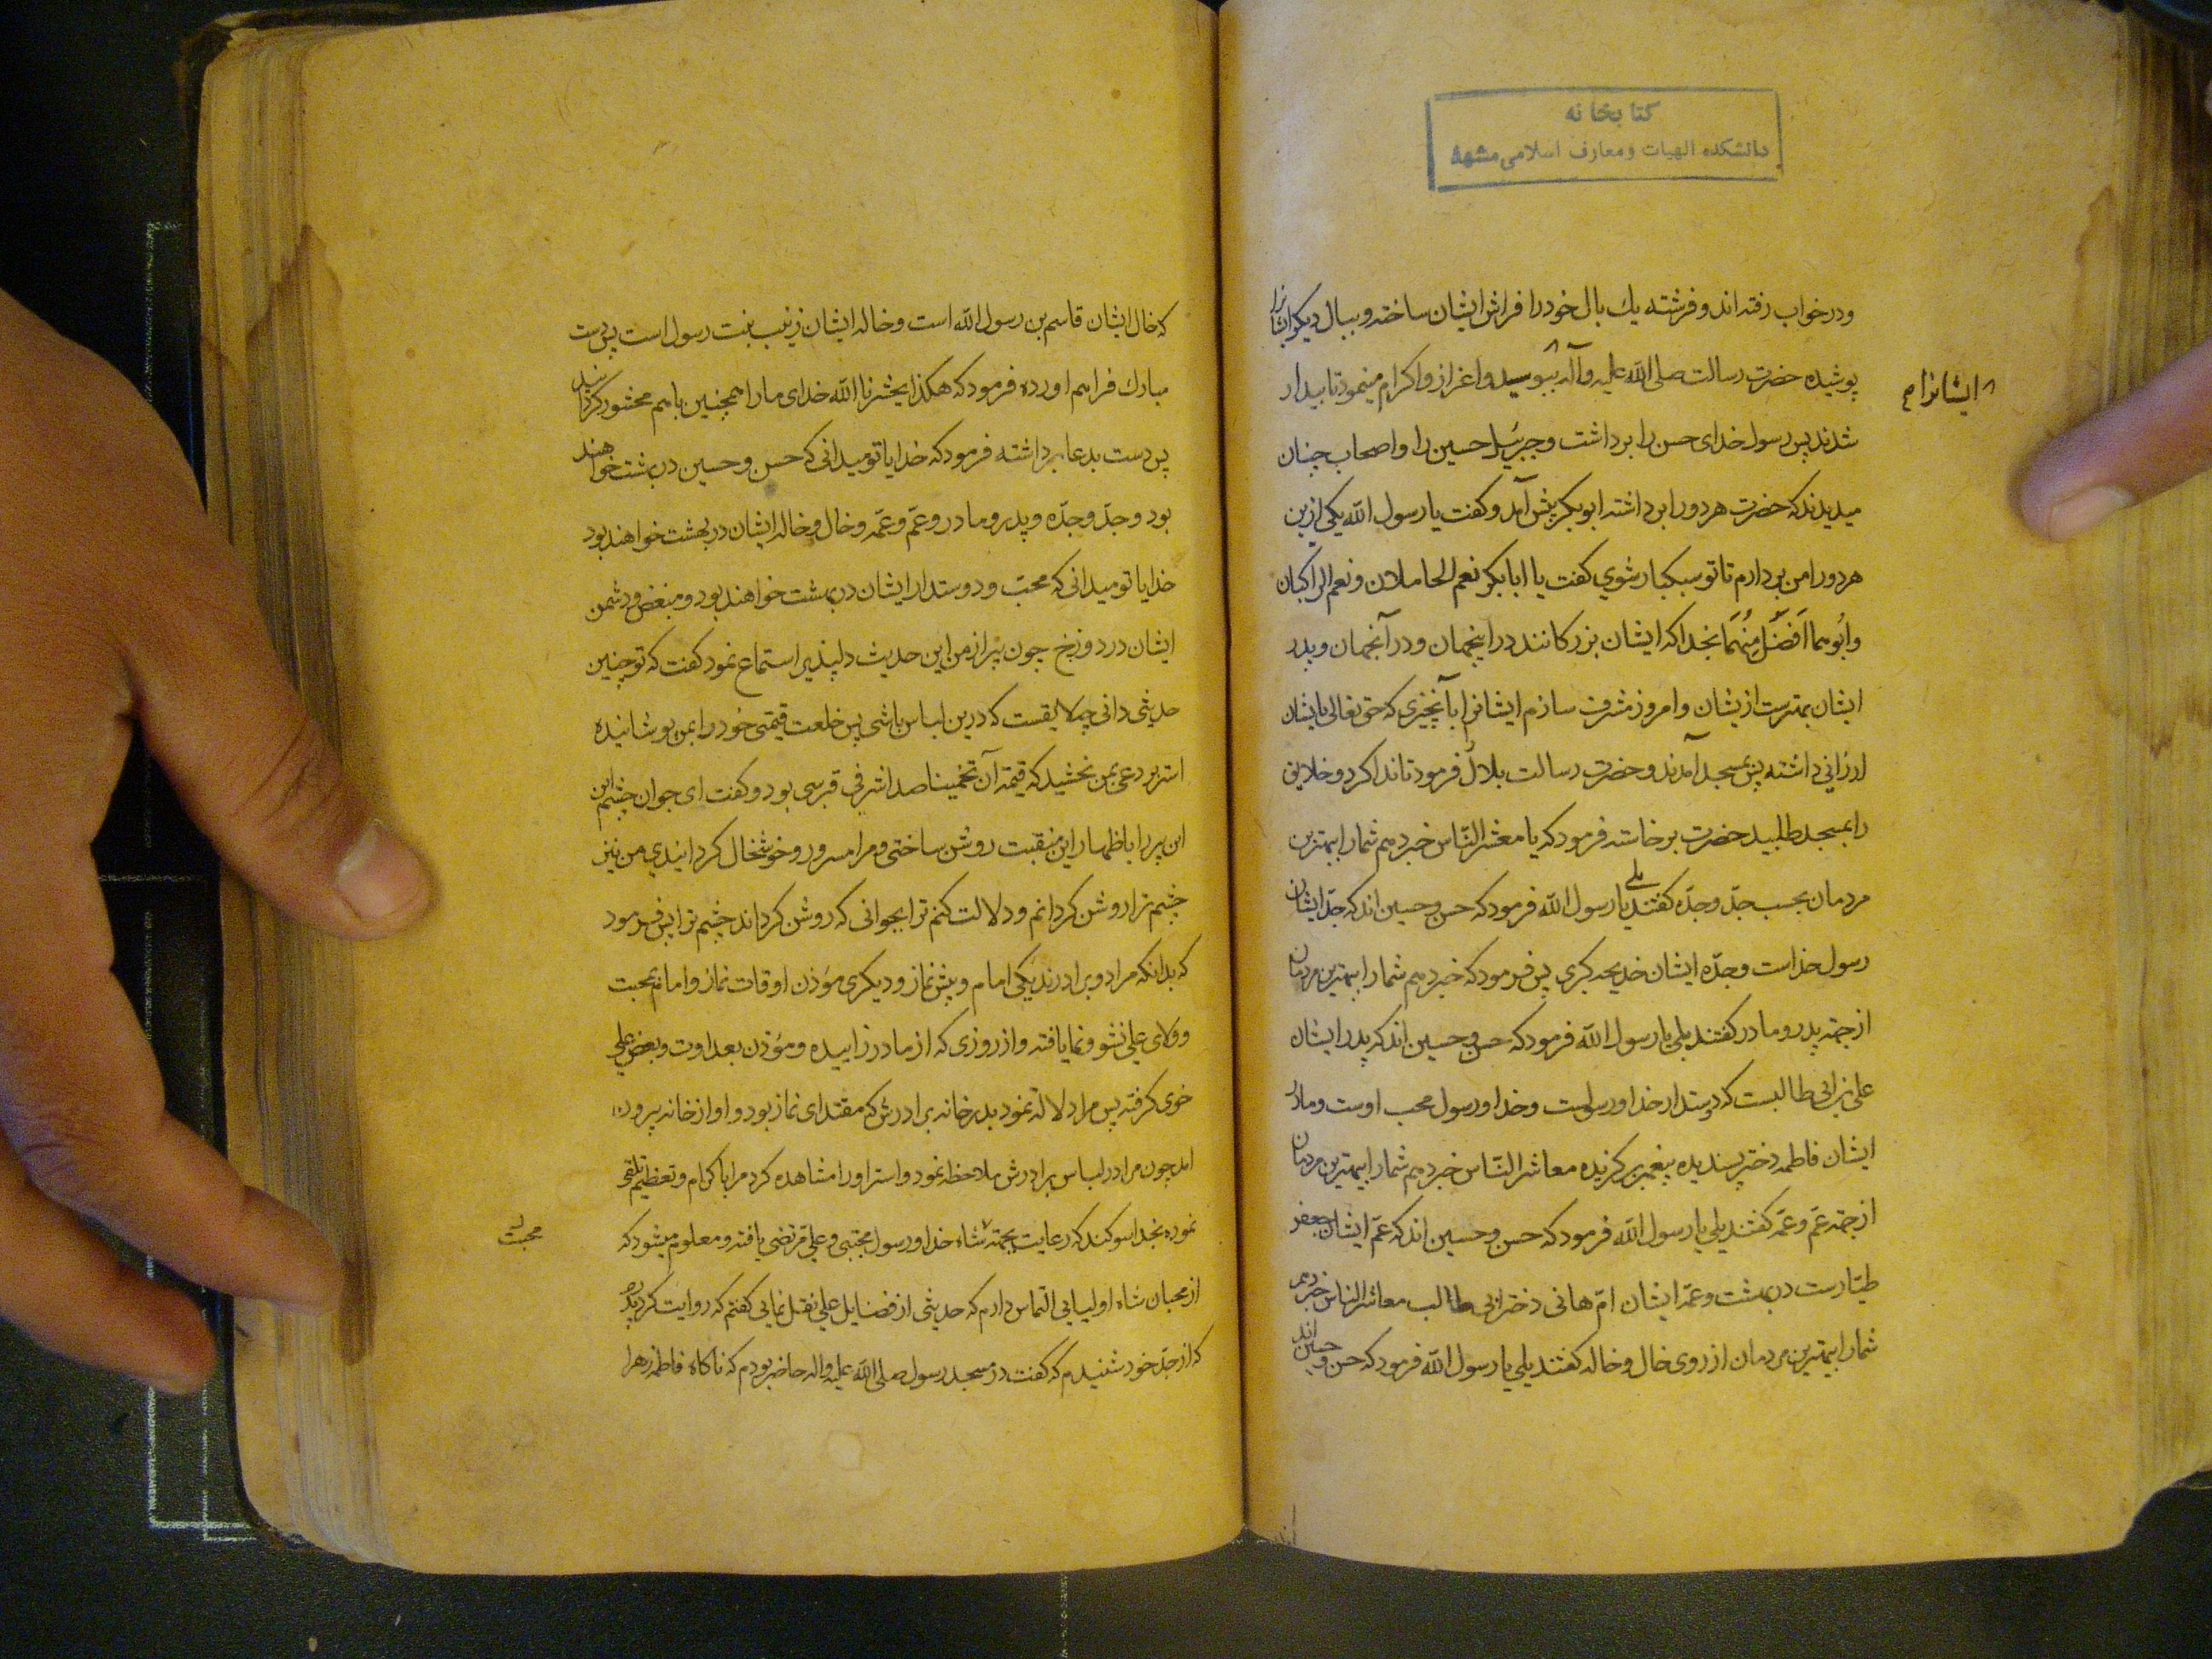 کتابخانه
دانشکده الهیات و معارف اسلامی مشهد
ودر خواب رفته اند و فرشته یك بال خود را فراش ایشان ساخته و ببال دیکر ایشانرا
پوشیده حضرت رسالت صلی الله علیه وآله ببوسید واعزاز واکرام مینمود تا بیدار
ایشانرا
شدند پس رسول خدای حسن را برداشت وجبرئیل حسین را واصحاب چنان
میدیدند که حضرت هر دو را برداشته ابوبکر پیش آمد و کفت یا رسول الله یکی ازین
هر دو را من بردارم تا تو سبکبار شوی کفت یا ابابکر نعم الحاملان ونعم الراکبان
وابُوهما اَفضَلُ مِنْهُمَا بخدا که ایشان بزرکانند در اینجهان ودر آنجهان وپدر
ایشان بهترست از یشان وامروز مشرف سازم ایشانرا بآنچیزی که حق تعالی بایشان
ارزانی داشته پس بمسجد آمدند وحضرت رسالت بلال فرمود تا ندا کرد وخلایق
را بمسجد طلبید حضرت برخاسته فرمود که یا معشر النّاس خبر دهم شما را ببهترین
مردمان بحسب جدّ وجدّه کفتند بلی یا رسول الله فرمود که حسن وحسین اند که جدّ ایشان
رسول خداست وجدّه ایشان خدیجه کبری پس فرمود که خبر دهم شما را ببهترین مردمان
از جهة پدر ومادر کفتند بلی یا رسول الله فرمود که حسن وحسین اند که پدر ایشان
علی بن ابی طالبست که دوستدار خدا ورسولست وخدا ورسول محب اوست ومادر
ایشان فاطمه دختر پسندیده پیغمبر برکزیده معاشر النّاس خبر دهم شما را ببهترین مردمان
از جهة عَم وعمّه کفتند بلی یا رسول الله فرمود که حسن وحسین اند که عمّ ایشان جعفر
طیّارست در بهشت وعمّه ایشان امّ هانی دختر ابی طالب معاشر الناس خبر دهم
شما را ببهترین مردمان از روی خال وخاله کفتند بلی یا رسول الله فرمود که حسن وحسین اند
که خال ایشان قاسم بن رسول الله است وخاله ایشان زینب بنت رسول است پس دست
مبارك فراهم اورده فرمود که هکذا یحشرنا الله خدای ما را همچنین باهم محشور کرداند
پس دست بدعا برداشته فرمود که خدایا تو میدانی که حسن وحسین در بهشت خواهند
بود وجدّ وجدّه وپدر ومادر وعمّ وعمّه وخال وخاله ایشان در بهشت خواهند بود
خدایا تو میدانی که محبّ ودوستدار ایشان در بهشت خواهند بود ومبغض ودشمن
ایشان در دوزخ چون پیر از من این حدیث دلپذیر استماع نمود کفت که تو چنین
حدیثی دانی چه لایقست که درین لباس باشی پس خلعت قیمتی خود را بمن پوشانیده
استر بردعی بمن بخشید که قیمة آن تخمینا صد اشرفی قبرسی بود وکفت ای جوان چشم این
این پیر را باظهار این منقبت روشن ساختی ومرا مسرور وخوشحال کردانیدی من نیز
چشم ترا روشن کردانم ودلالت کنم ترا بجوانی که روشن کرداند چشم ترا پس فرمود
که بدانکه مرا دو برادرند یکی امام وپیش نماز ودیکری مؤذن اوقات نماز واما امام بمحبت
وولای علی نشو ونما یافته واز روزی که از مادر زاییده ومؤذن بعداوت وبغض علی
خوی کرفته پس مرا دلالة نمود بدر خانه برادرش که مقتدای نماز بود واو از خانه بیرون
امد چون مرا در لباس برادرش ملاحظه نمود واستر او را مشاهده کرد مرا باکرام وتعظیم تلقی
نموده بخدا سوکند که رعایت بجهة شاه خدا ورسول مجتبی وعلی مرتضی یافته ومعلوم میشود که
محبت
از محبان شاه اولیایی التماس دارم که حدیثی از فضایل علی نقل نمایی کفتم که روایت کرد پدرم
که از جدّ خود شنیدم که کفت در مسجد رسول صلی الله علیه واله حاضر بودم که ناکاه فاطمه زهرا